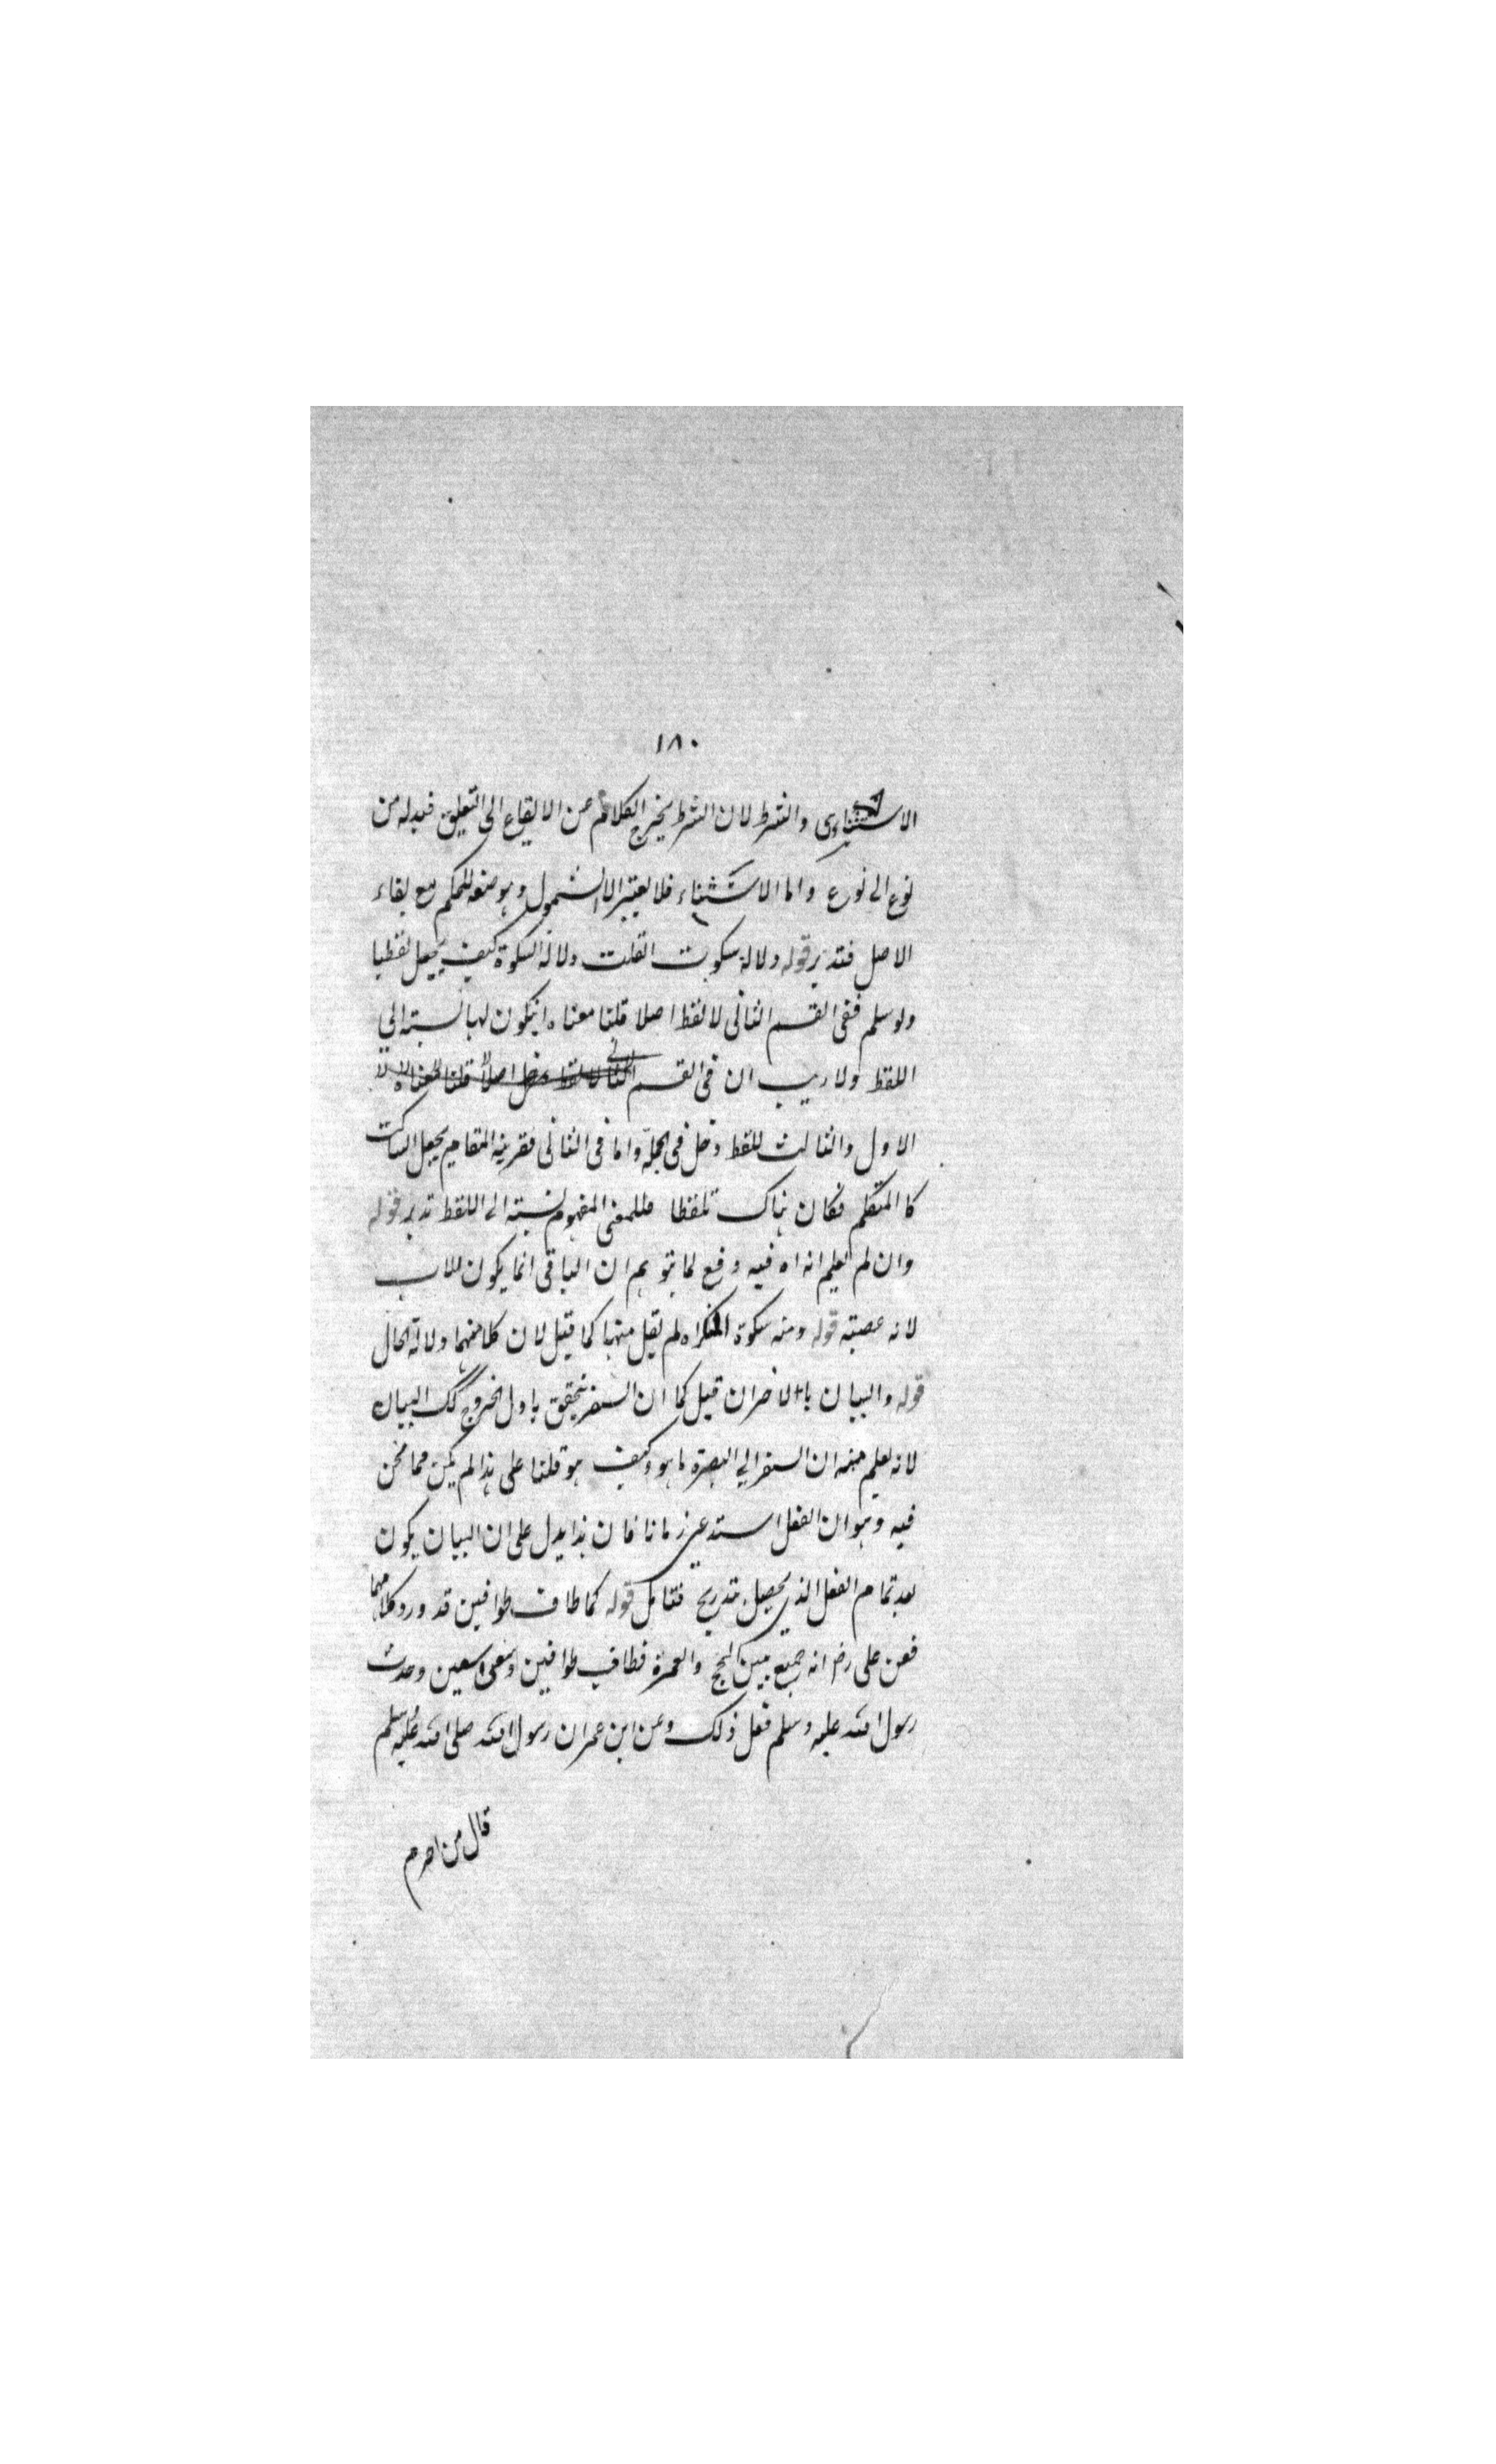 ١٨٠
والشرط لان الشرط يخرج الكلام عن الايقاع الى التعليق فيدله من
نوع الى نوع واما الاستثناء فلا يعتبر الا الشمول وهو منعه للحكم مع بقاء
الاصل فتدبر قوله ودلالة سكوت ان قلت دلالة السكوة كيف يجعل لفظيا
ولو سلم ففى القسم الثانى لا لفظ اصلا قلنا معناه ان يكون لها نسبته الى
اللفظ ولا ريب ان فى القسم
الاول والثالث للفظ دخل فى الجملة واما فى الثانى فقرينة المقام يجعل الساكت
كالمتكلم فكان هناك تلفظا فللمعنى المفهوم نسبته الى اللفظ تدبر قوله
وان لم تعلم انه اه فيه دفع لما يتوهم ان الباقى انما يكون للاب
لانه عصبته قوله ومنه سكوة المنكر اه لم يقل منهما كما قيل لان كلا منهما دلالة الحال
قوله والبيان بالاخران قيل كما ان السفر يتحقق باول الخروج كك البيان
لانه يعلم منه ان السفر الى البصرة ما هو وكيف هو قلنا على هذا لم يكن مما نحن
فيه وهو ان الفعل استدعى زمانا فان هذا يدل على ان البيان يكون
بعد تمام الفعل الذى يحصل بتدريج فتامل قوله كما طاف طوافين قد ورد كلامهما
فعن على رض انه جمع بين الحج والعمرة فطاف طوافين وسعى سعين وحدث
رسول الله عليه وسلم فعل ذلك وعن ابن عمر ان رسول الله صلى الله عليه وسلم
قال من احرم